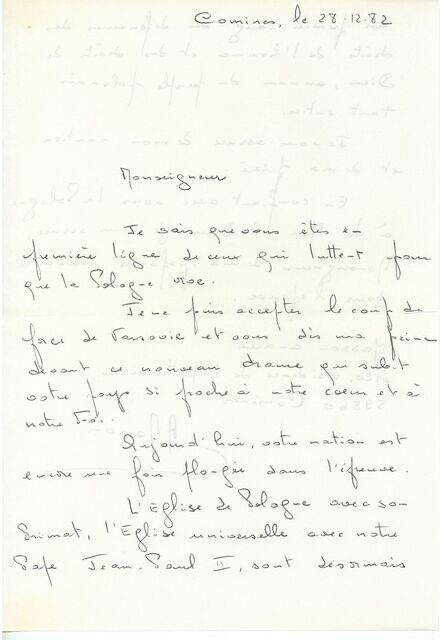 Comines, le 28.12.82
Monseigneur
Je sais que vous êtes en
première ligne de ceux qui luttent pour
que la Pologne vive.
Je ne puis accepter le coup de
force de Varsovie et vous dis ma peine
devant ce nouveau drame que subit
votre pays si proche à notre coeur et à
notre Foi.
Aujourd'hui, votre nation est
encore une fois plongée dans l'épreuve.
L'Eglise de Pologne avec son
Primat, l'Eglise universelle avec notre
Pape Jean-Paul II, sont désormais